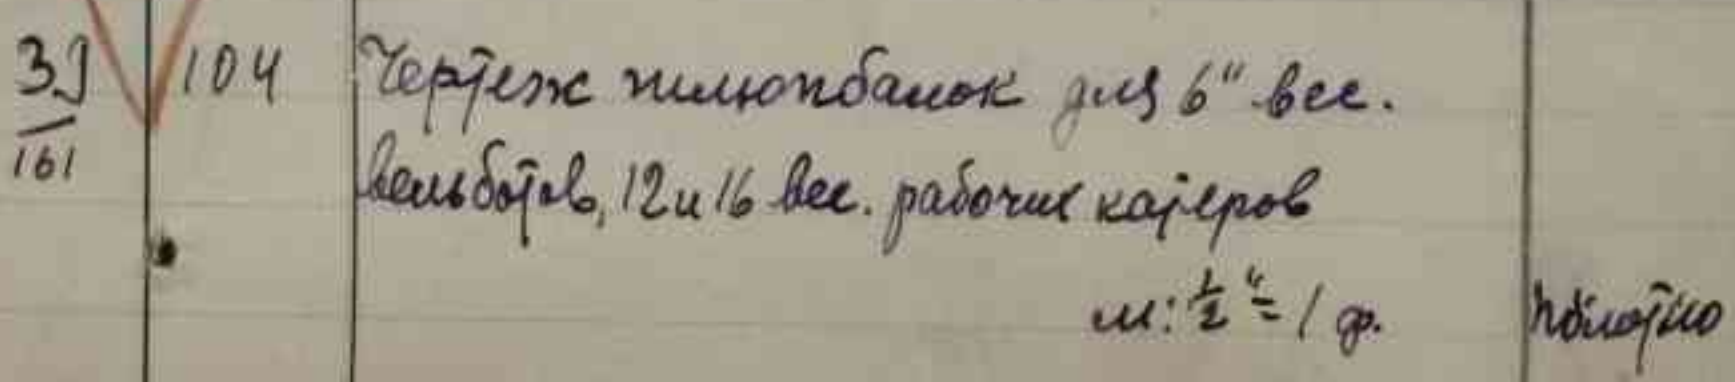 39 104 Чертеж шлюпбалок для 6" вес.
161 вельботов, 12 и 16 вес. рабочих катеров
м: 1/2" = 1 ф. полотно